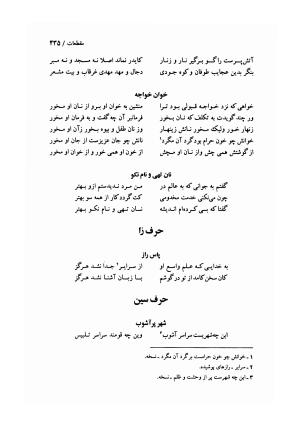 مقطعات / ۴۳۵
آتش‌پرست را گو برگیر نار و زنار
کایدر نماند اصلا نه مسجد و نه میر
بنگر بدین عجایب طوفان و کوه جودی
دجال و مهد مهدی غرقاب و بیت مشعر
خوان خواجه
خواهی که نزد خواجه قبولی بود ترا
منشین به خوان او بر و از نان او مخور
ور چند گویدت به تکلف که نان بخور
فرمانبر آن چه گفت و به فرمان او مخور
زنهار خور ولیک مخور نانش زینهار
وز نان طفل و بیوه بخور زآن او مخور
خوانش چو خون حرام بود گرد آن مگرد۱
نانش چو جان عزیزست از جان او مخور
از گوشتش همی چش و از نان او مچش
از خون او همی خور و از خوان او مخور
نان تهی و نام نکو
گفتم به جوانی که به عالم در
من مرد ندیدستم ازو بهتر
چون می‌نکنی خدمت مخدومی
کت گردد کار از همه سو بهتر
گفتا که بسی کرده‌ام اندیشه
نان تهی و نام نکو بهتر
حرف زا
پاس راز
به خدایی که علم واسع او
از سرایر۲ جدا نشد هرگز
کان سخن کامد از تو در گوشم
با زبان آشنا نشد هرگز
حرف سین
شهر پرآشوب
این چه شهریست سراسر آشوب۳
وین چه قومند سراسر تلبیس
۱ ـ خوانش چو خون حرامست برگرد آن مگرد ـ نسخه.
۲ ـ سرایر ـ رازهای پوشیده.
۳ ـ این چه شهرست پر از وحشت و ظلم ـ نسخه.